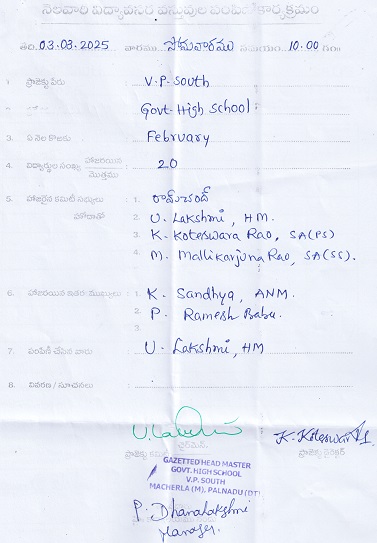 నెలవారి విద్యావసర వస్తువుల పంపిణి కార్యక్రమం
తేది: 03.03.2025 వారము సోమవారము సమయం 10.00 గం
1. ప్రాజెక్టు పేరు : V.P. South
2. : Govt. High School
3. ఏ నెల కొఱకు : February
4. విద్యార్థుల సంఖ్య హాజరయిన మొత్తము : 20
5. హాజరైన కమిటీ సభ్యులు : 1. రామచంద్
2. U. Lakshmi, HM.
3. K. Koteswara Rao, SA(PS)
4. M. Mallikarjuna Rao, SA(SS).
6. హాజరయిన ఇతర ముఖ్యులు : 1. K. Sandhya, ANM.
2. P. Ramesh Babu.
3.
7. పంపిణీ చేసిన వారు : U. Lakshmi, HM
8. వివరణ / సూచనలు :
K. Koteswara
ప్రాజెక్టు కమిటీ ఛైర్మన్. ప్రాజెక్టు డైరెక్టర్
GAZETTED HEAD MASTER
GOVT. HIGH SCHOOL
V.P. SOUTH
MACHERLA (M), PALNADU (DT)
P. Dhanalakshmi
Manager.